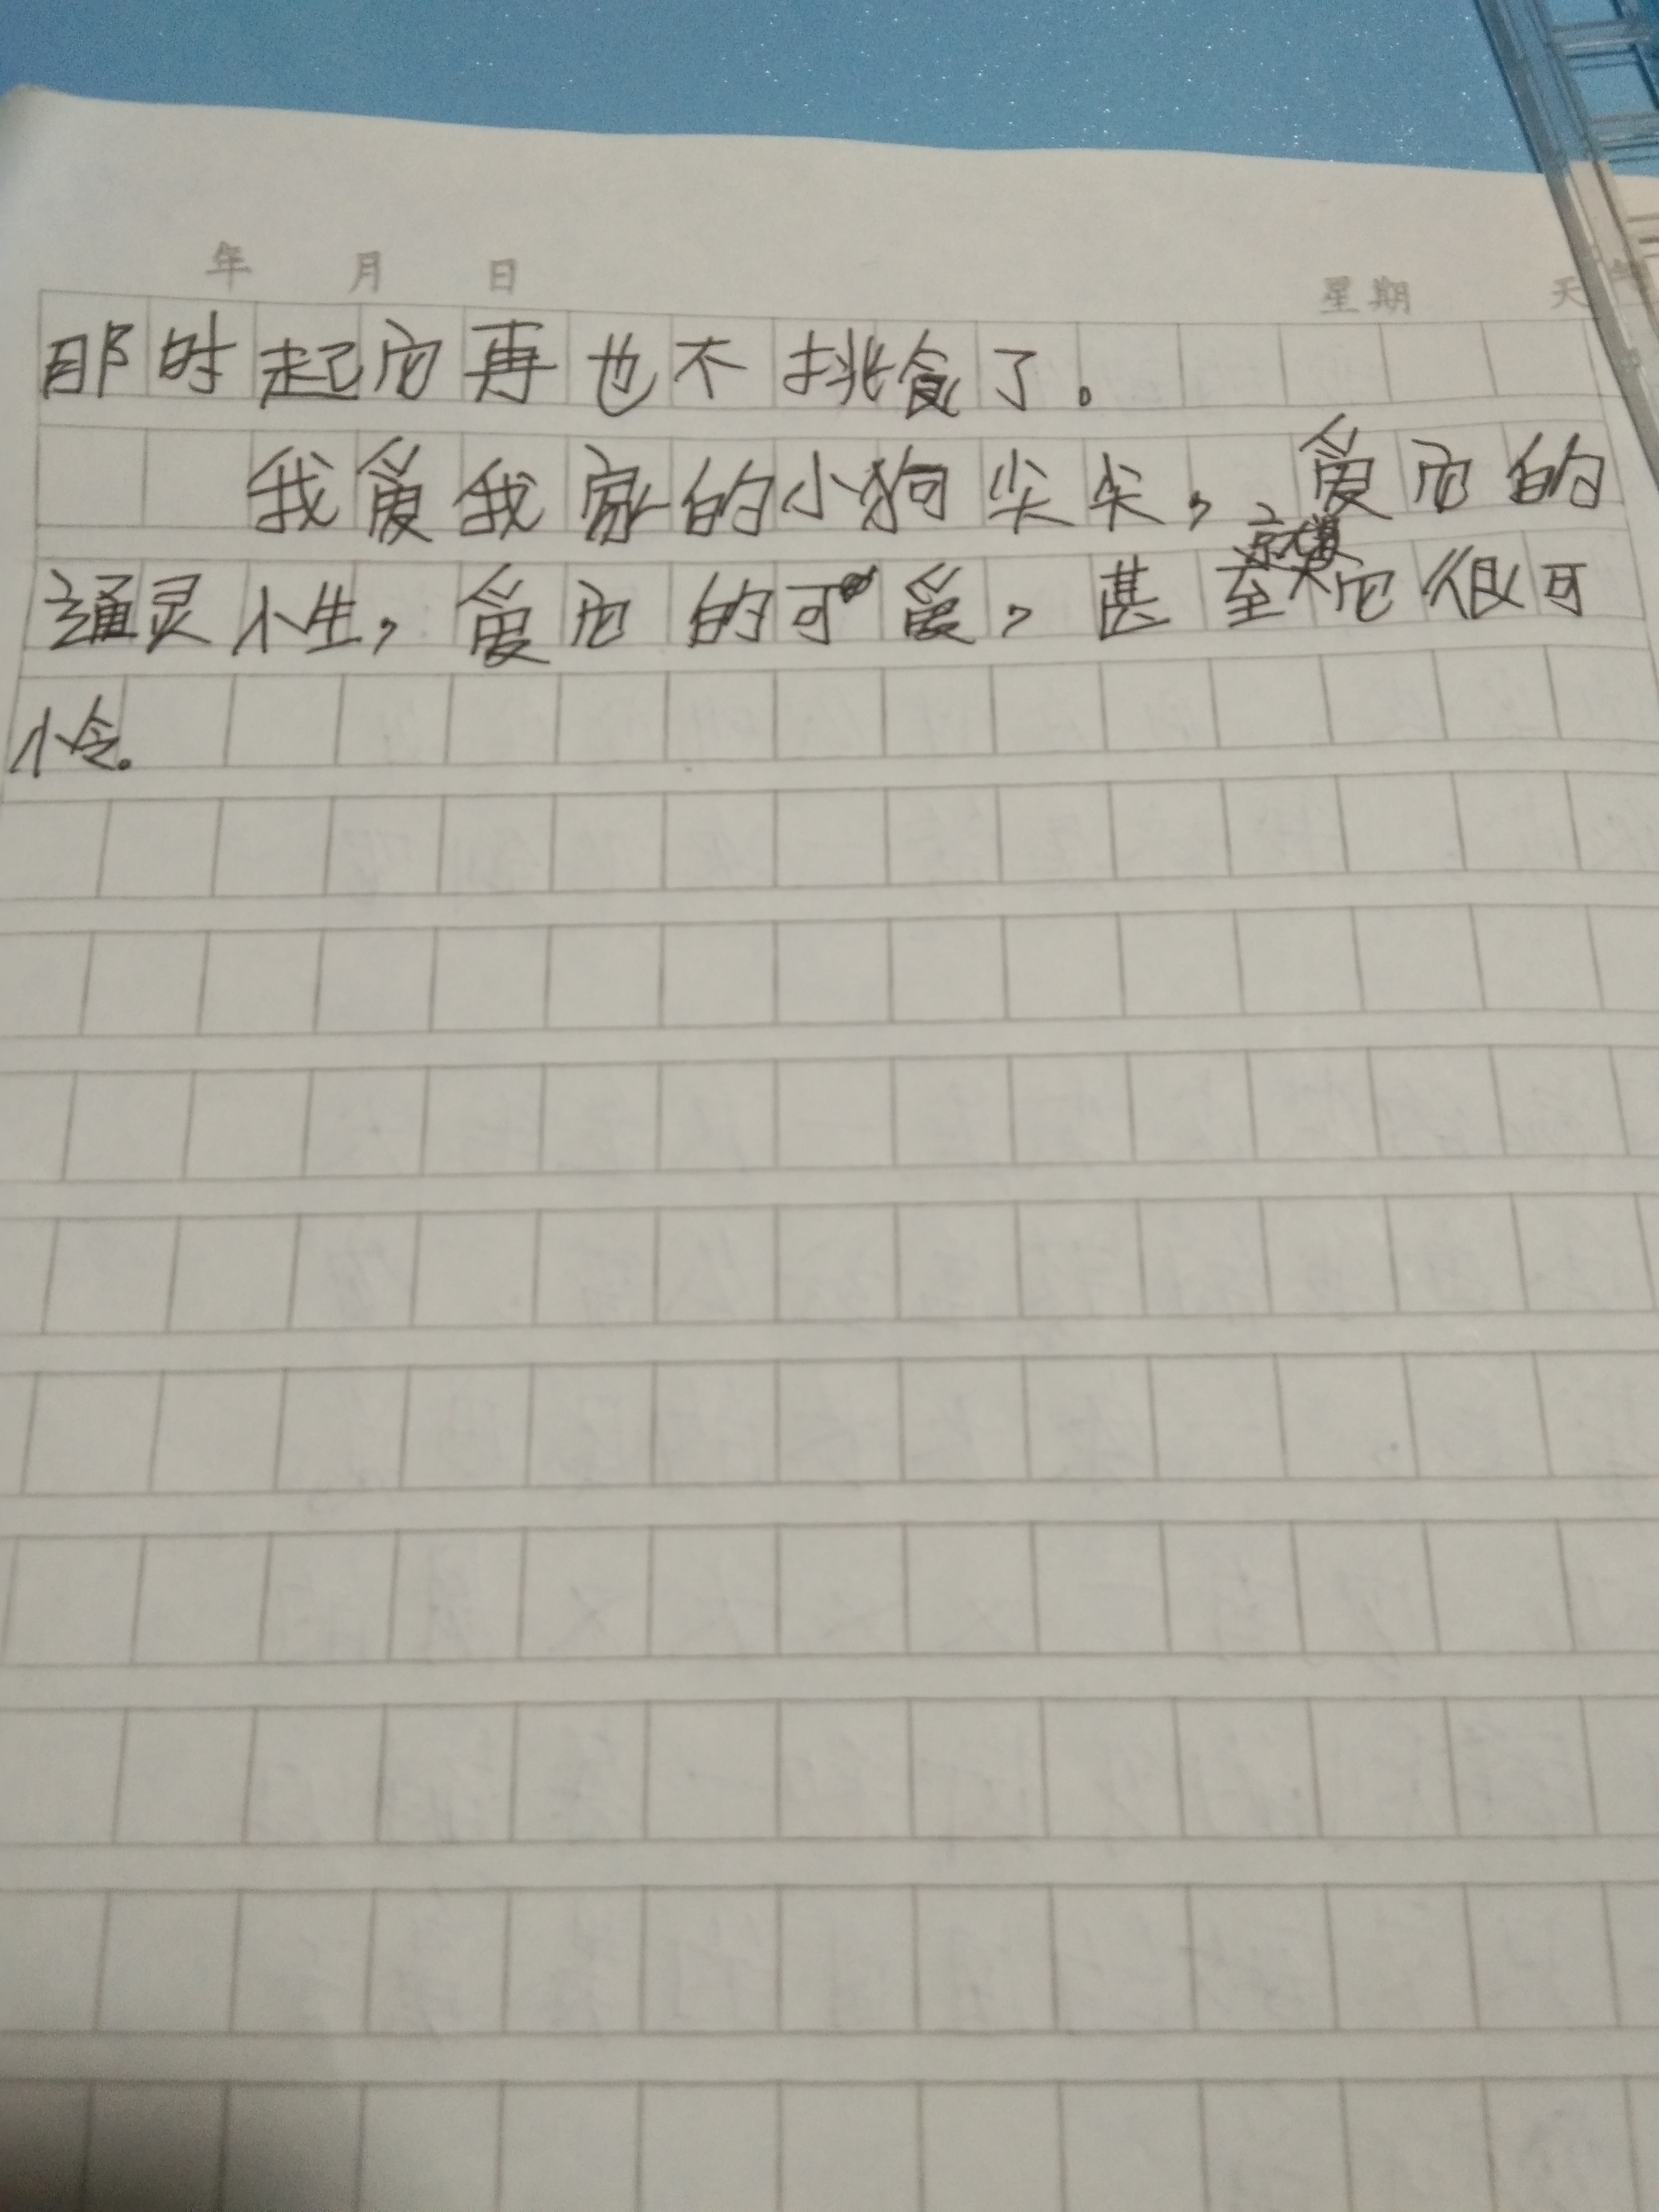 年 月 日 星期 天气
那时起它再也不挑食了。
我爱我家的小狗尖尖，爱它的
通灵小生，爱它的可爱，甚至它很可
怜。